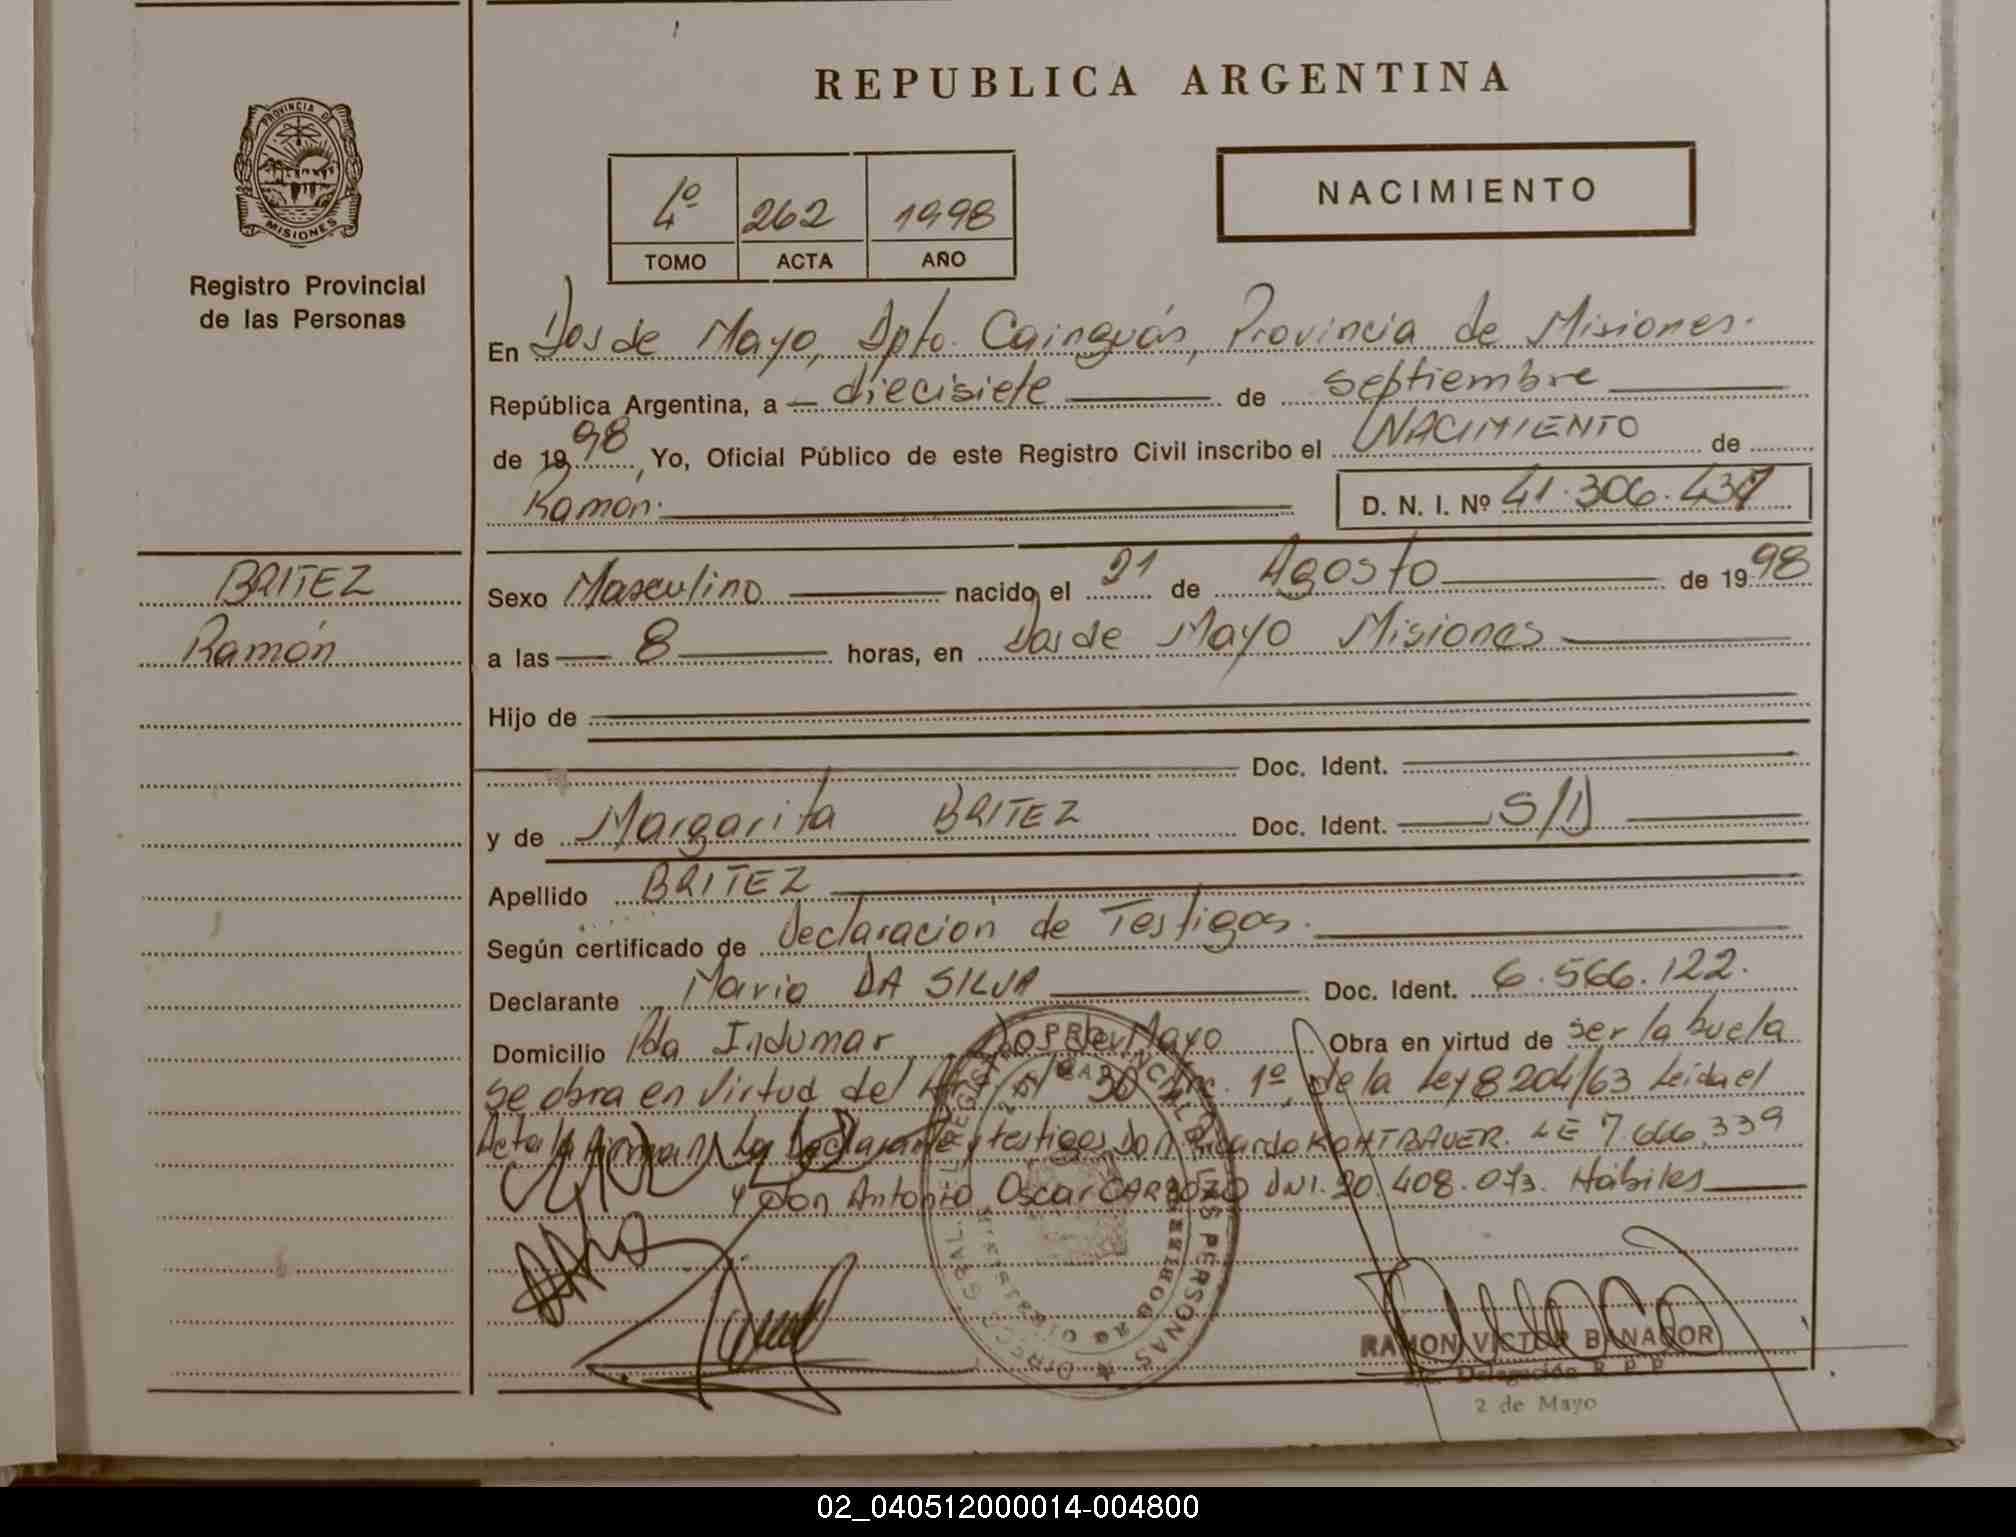 REPUBLICA ARGENTINA
PROVINCIA DE
MISIONES
Registro Provincial
de las Personas
4º 262 1998
TOMO ACTA AÑO
NACIMIENTO
En Dos de Mayo, Dpto. Cainguás, Provincia de Misiones.
República Argentina, a diecisiete de septiembre
de 1998, Yo, Oficial Público de este Registro Civil inscribo el NACIMIENTO de
Ramón. D. N. I. Nº 41.306.437
BRITEZ
Ramón
Sexo Masculino nacido el 21 de Agosto de 1998
a las 8 horas, en Dos de Mayo Misiones
Hijo de
Doc. Ident.
y de Margarita BRITEZ Doc. Ident. S/D
Apellido BRITEZ
Según certificado de Declaración de Testigos.
Declarante Maria DA SILVA Doc. Ident. 6.566.122.
Domicilio Pda Indumar Dos de Mayo Obra en virtud de ser la buela
se obra en virtud del Art. 30 Inc. 1º de la Ley 8204/63 Leida el
Acta la firman la Declarante y testigos Don Ricardo KOHTBAUER. LE 7.666.339
y Don Antonio Oscar CARDOZO DNI. 20.408.073. Hábiles
RAMON VICTOR BANADOR
Delegación R P P
2 de Mayo
02_040512000014-004800